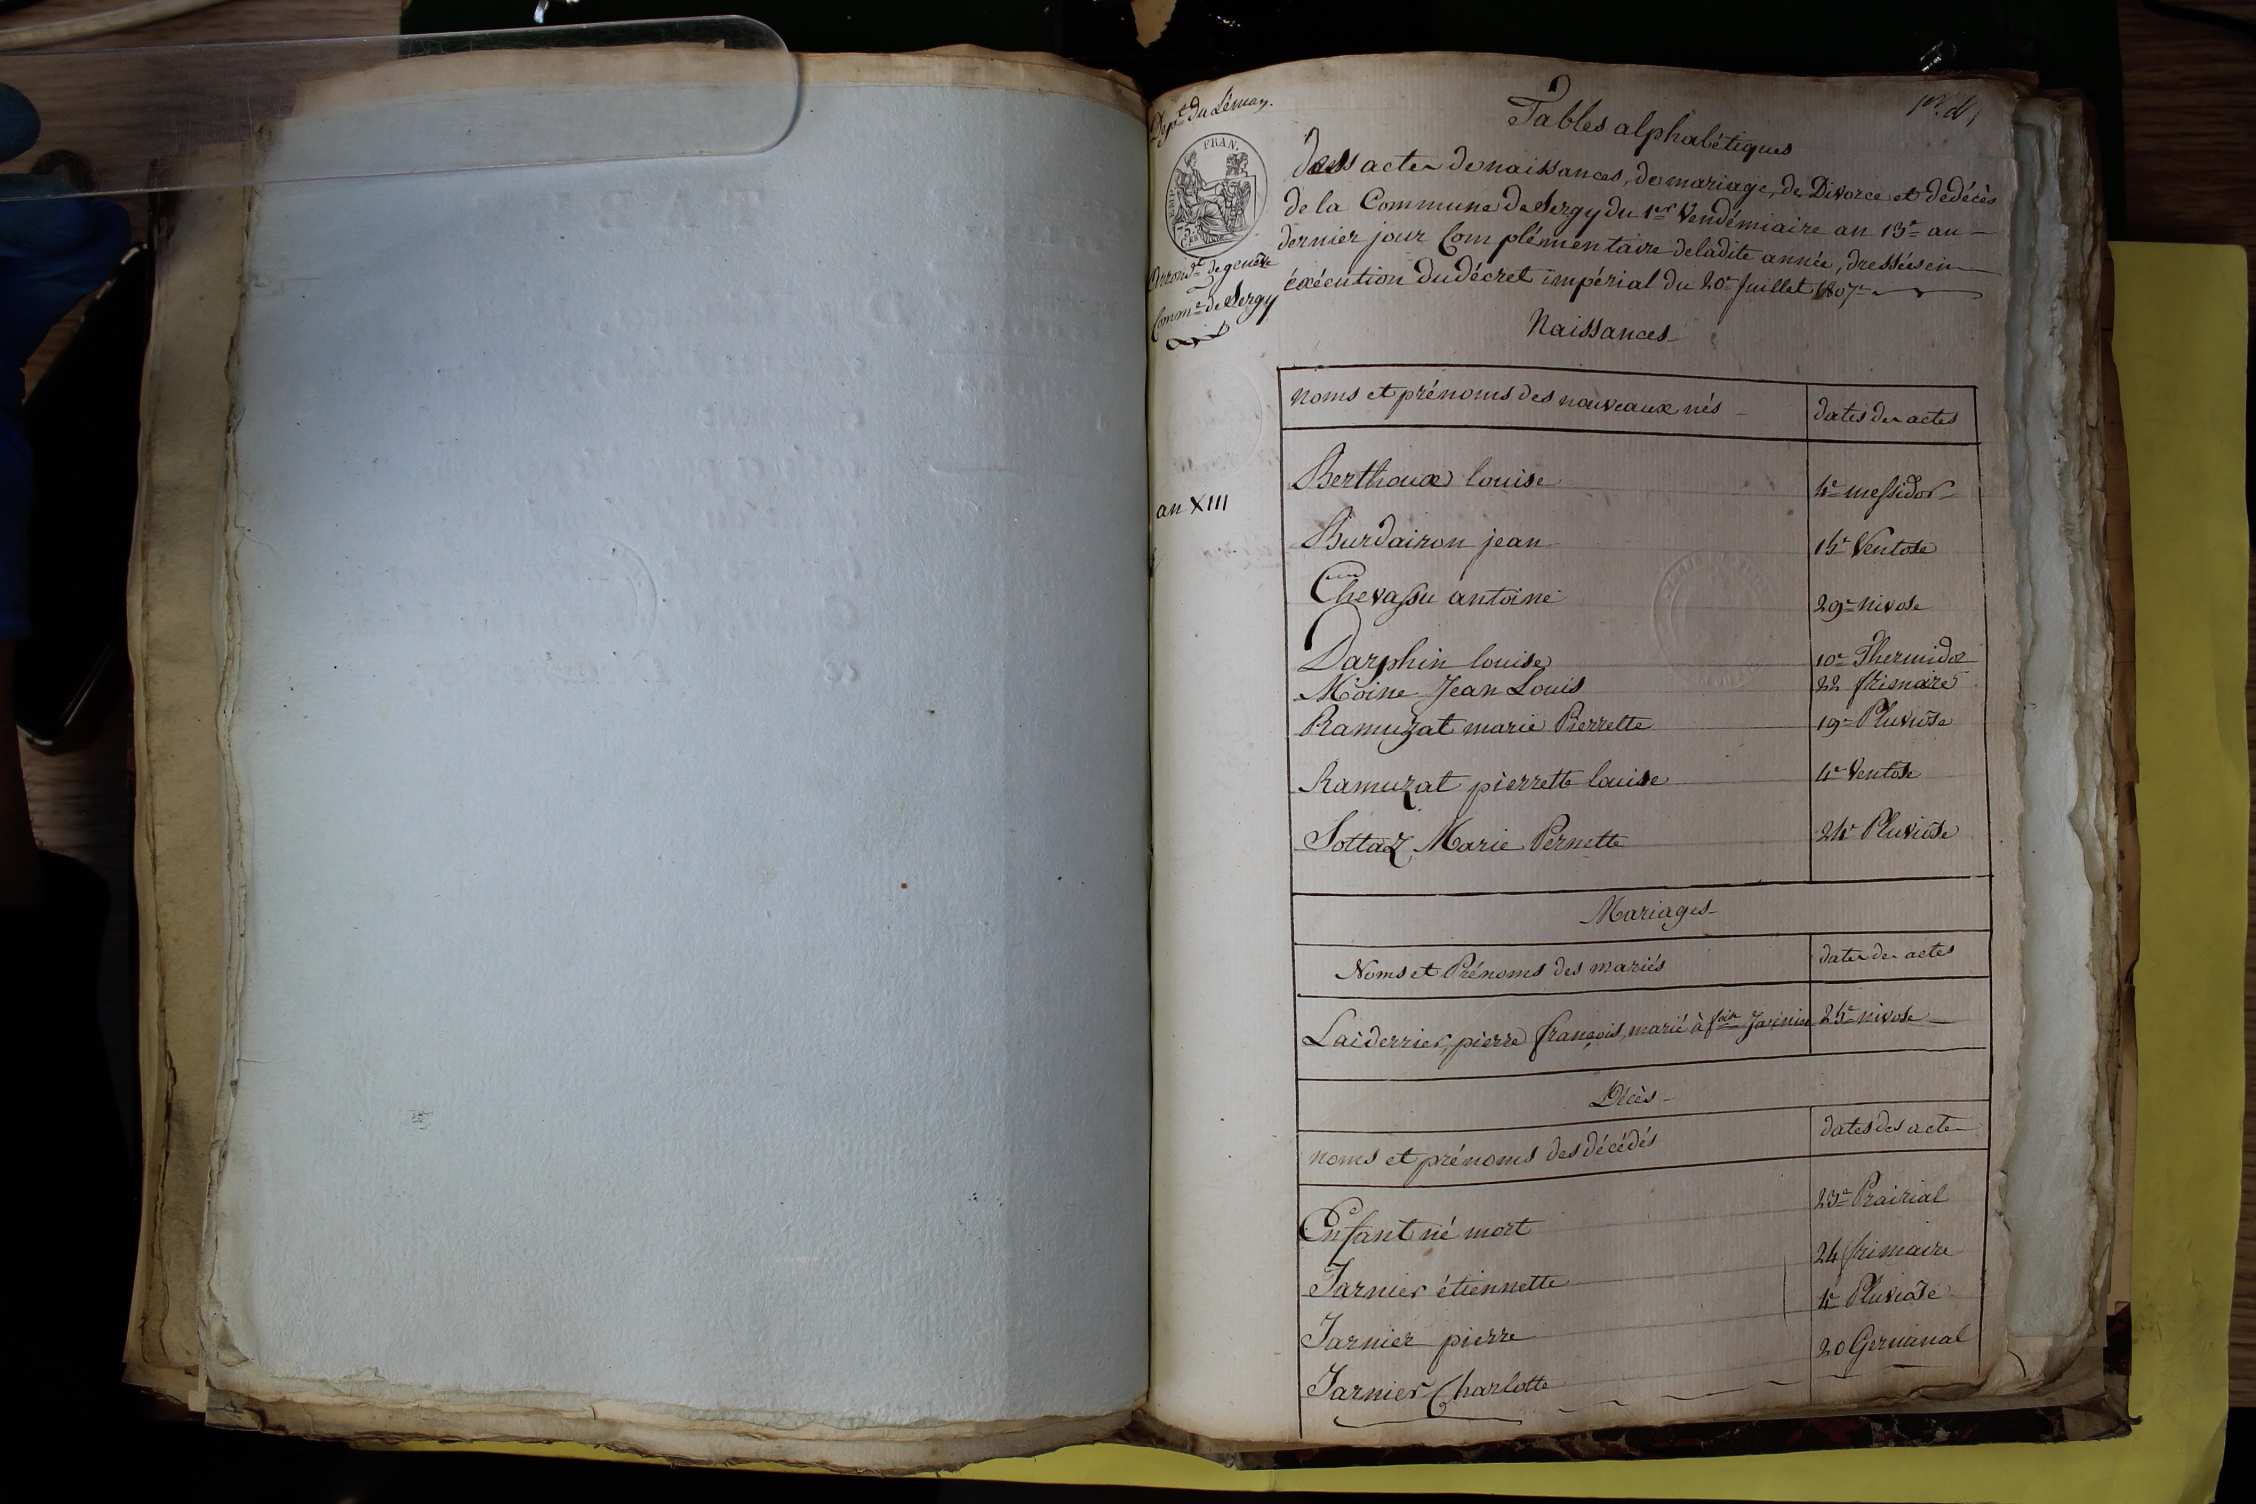 Dep.t du Léman.
EMP. FRAN.
75.
Tables alphabétiques
des actes de naissances, de mariage, de Divorce et de décès
de la Commune de Sergy du 1er Vendémiaire an 13e au
dernier jour Complémentaire de ladite année, dressées en
éxécution du décret impérial du 20e Juillet 1807
arrond.t de genève
Comm.e de Sergy
Naissances
noms et prénoms des nouveaux nés
dates des actes
an XIII
Berthoux louise
4e messidor
Burdairon jean
Ventose
Chevassu antoine
29e nivose
Darphin louise
10e Thermidor
Moine Jean Louis
22 frimaire
Ramuzat marie Pierrette
19e Pluviôse
Ramuzat pierrette louise
4e Ventose
Sottaz Marie Pernette
24e Pluviôse
Mariages
Noms et Prénoms des mariés
dates des actes
Laiderrier, pierre françois, marié à
nivose
Décès
noms et prénoms des décédés
dates des actes
Enfant né mort
Prairial
Jarnier étiennette
24 frimaire
Jarnier pierre
4e Pluviôse
Jarnier Charlotte
20 Germinal